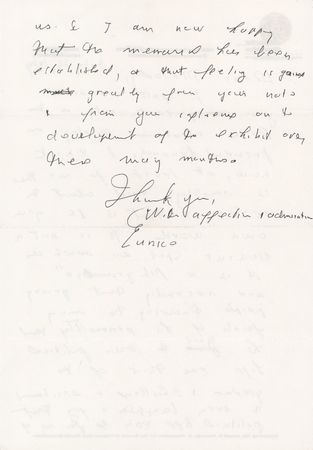 us. & I am now happy
that the memorial has been
established, & that feeling is
greatly from your note
& from your on the
development of the exhibit over
these many months.
Thank you,
With affection & admiration
Eunice